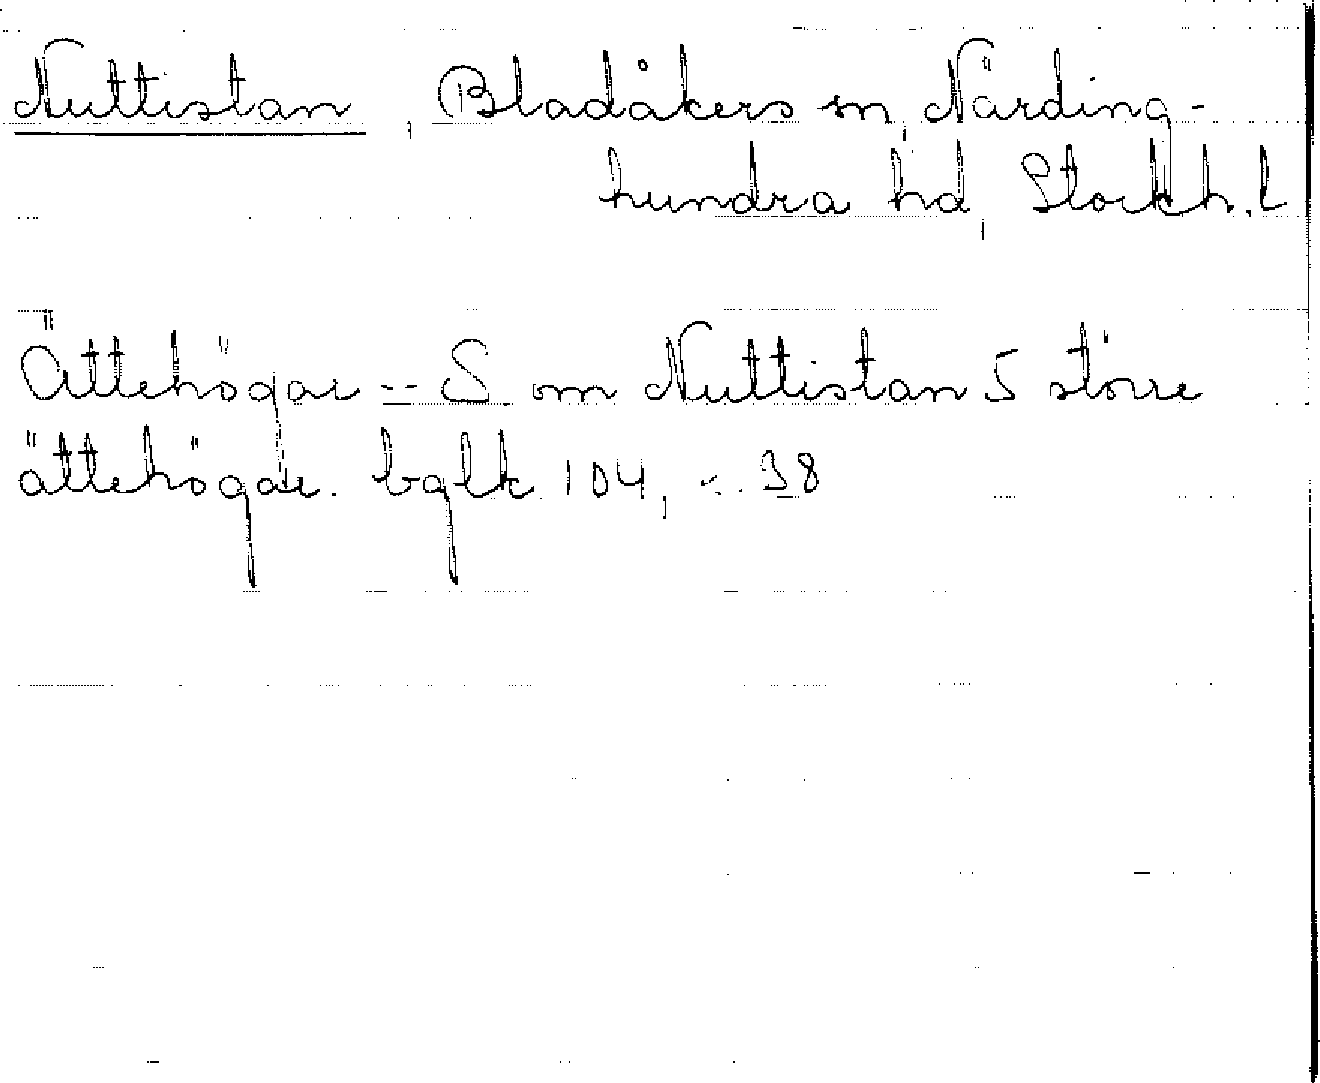 Nuttistan, Bladåkers sn, Närding-
hundra hd, Stockh. l
Ättehögar -- S om Nuttistan 5 större
ättehögar. bglk 104, s. 38